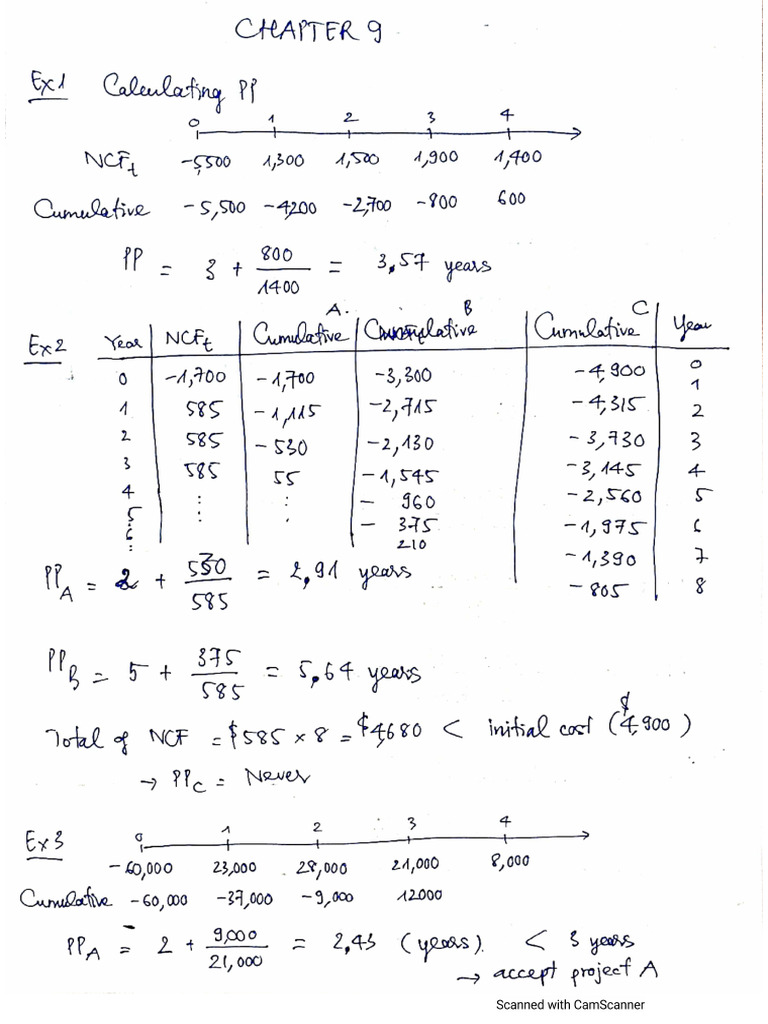 CHAPTER 9
Ex1 Calculating PP
0 1 2 3 4
NCFt -5,500 1,300 1,500 1,900 1,400
Cumulative -5,500 -4200 -2,700 -800 600
PP = 3 + 800/1400 = 3,57 years
A. B C
Ex2 Year NCFt Cumulative Cumulative Cumulative Year
0 -1,700 -1,700 -3,300 -4,900 0
1 585 -1,115 -2,715 -4,315 1
2 585 -530 -2,130 -3,730 2
3 585 55 -1,545 -3,145 3
4 ⋮ ⋮ -960 -2,560 4
5 -375 -1,975 5
6 210 -1,390 6
.. -805 7
8
PPA = 2 + 530/585 = 2,91 years
PPB = 5 + 375/585 = 5,64 years
Total of NCF = $585 × 8 = $4,680 < initial cost ($4,900)
→ PPC = Never
Ex3 0 1 2 3 4
-60,000 23,000 28,000 21,000 8,000
Cumulative -60,000 -37,000 -9,000 12000
PPA = 2 + 9,000/21,000 = 2,43 (years). < 3 years
→ accept project A
Scanned with CamScanner